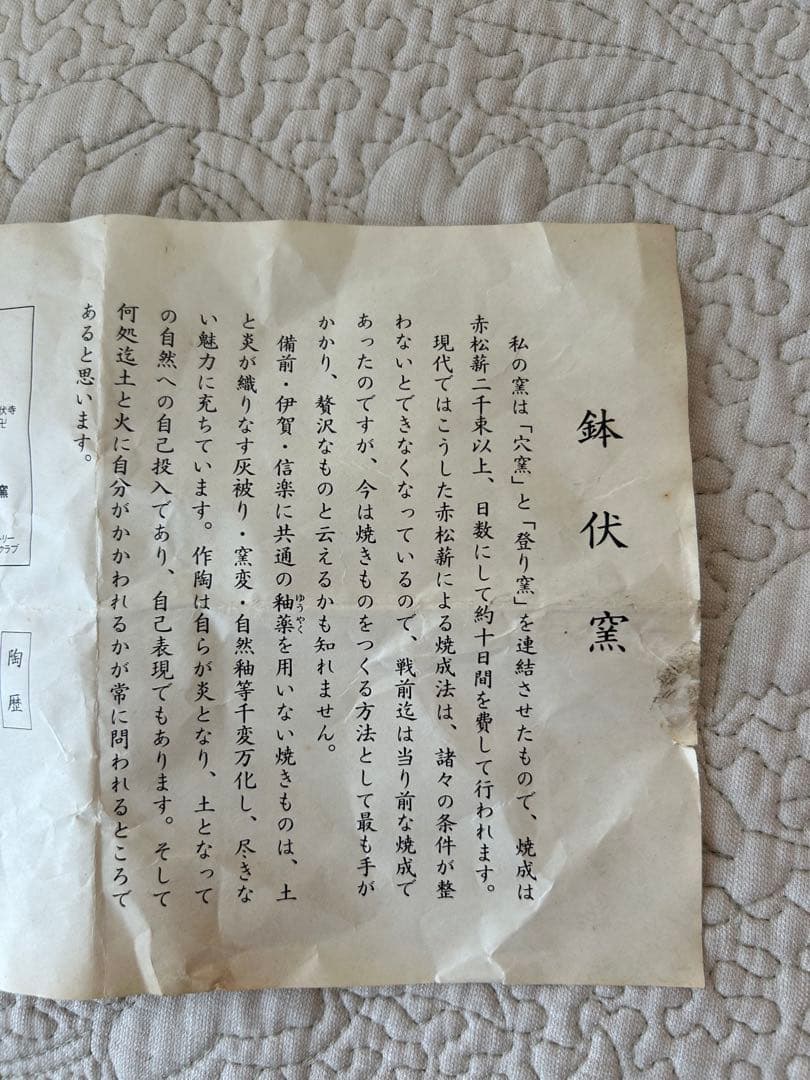 鉢伏窯
私の窯は「穴窯」と「登り窯」を連結させたもので、焼成は
赤松薪二千束以上、日数にして約十日間を費して行われます。
現代ではこうした赤松薪による焼成法は、諸々の条件が整
わないとできなくなっているので、戦前迄は当り前な焼成で
あったのですが、今は焼きものをつくる方法として最も手が
かかり、贅沢なものと云えるかも知れません。
備前・伊賀・信楽に共通の釉薬を用いない焼きものは、土
ゆうやく
と炎が織りなす灰被り・窯変・自然釉等千変万化し、尽きな
い魅力に充ちています。作陶は自らが炎となり、土となって
の自然への自己投入であり、自己表現でもあります。そして
何処迄土と火に自分がかかわれるかが常に問われるところで
あると思います。
伏寺
卍
窯
リー
クラブ
陶歴